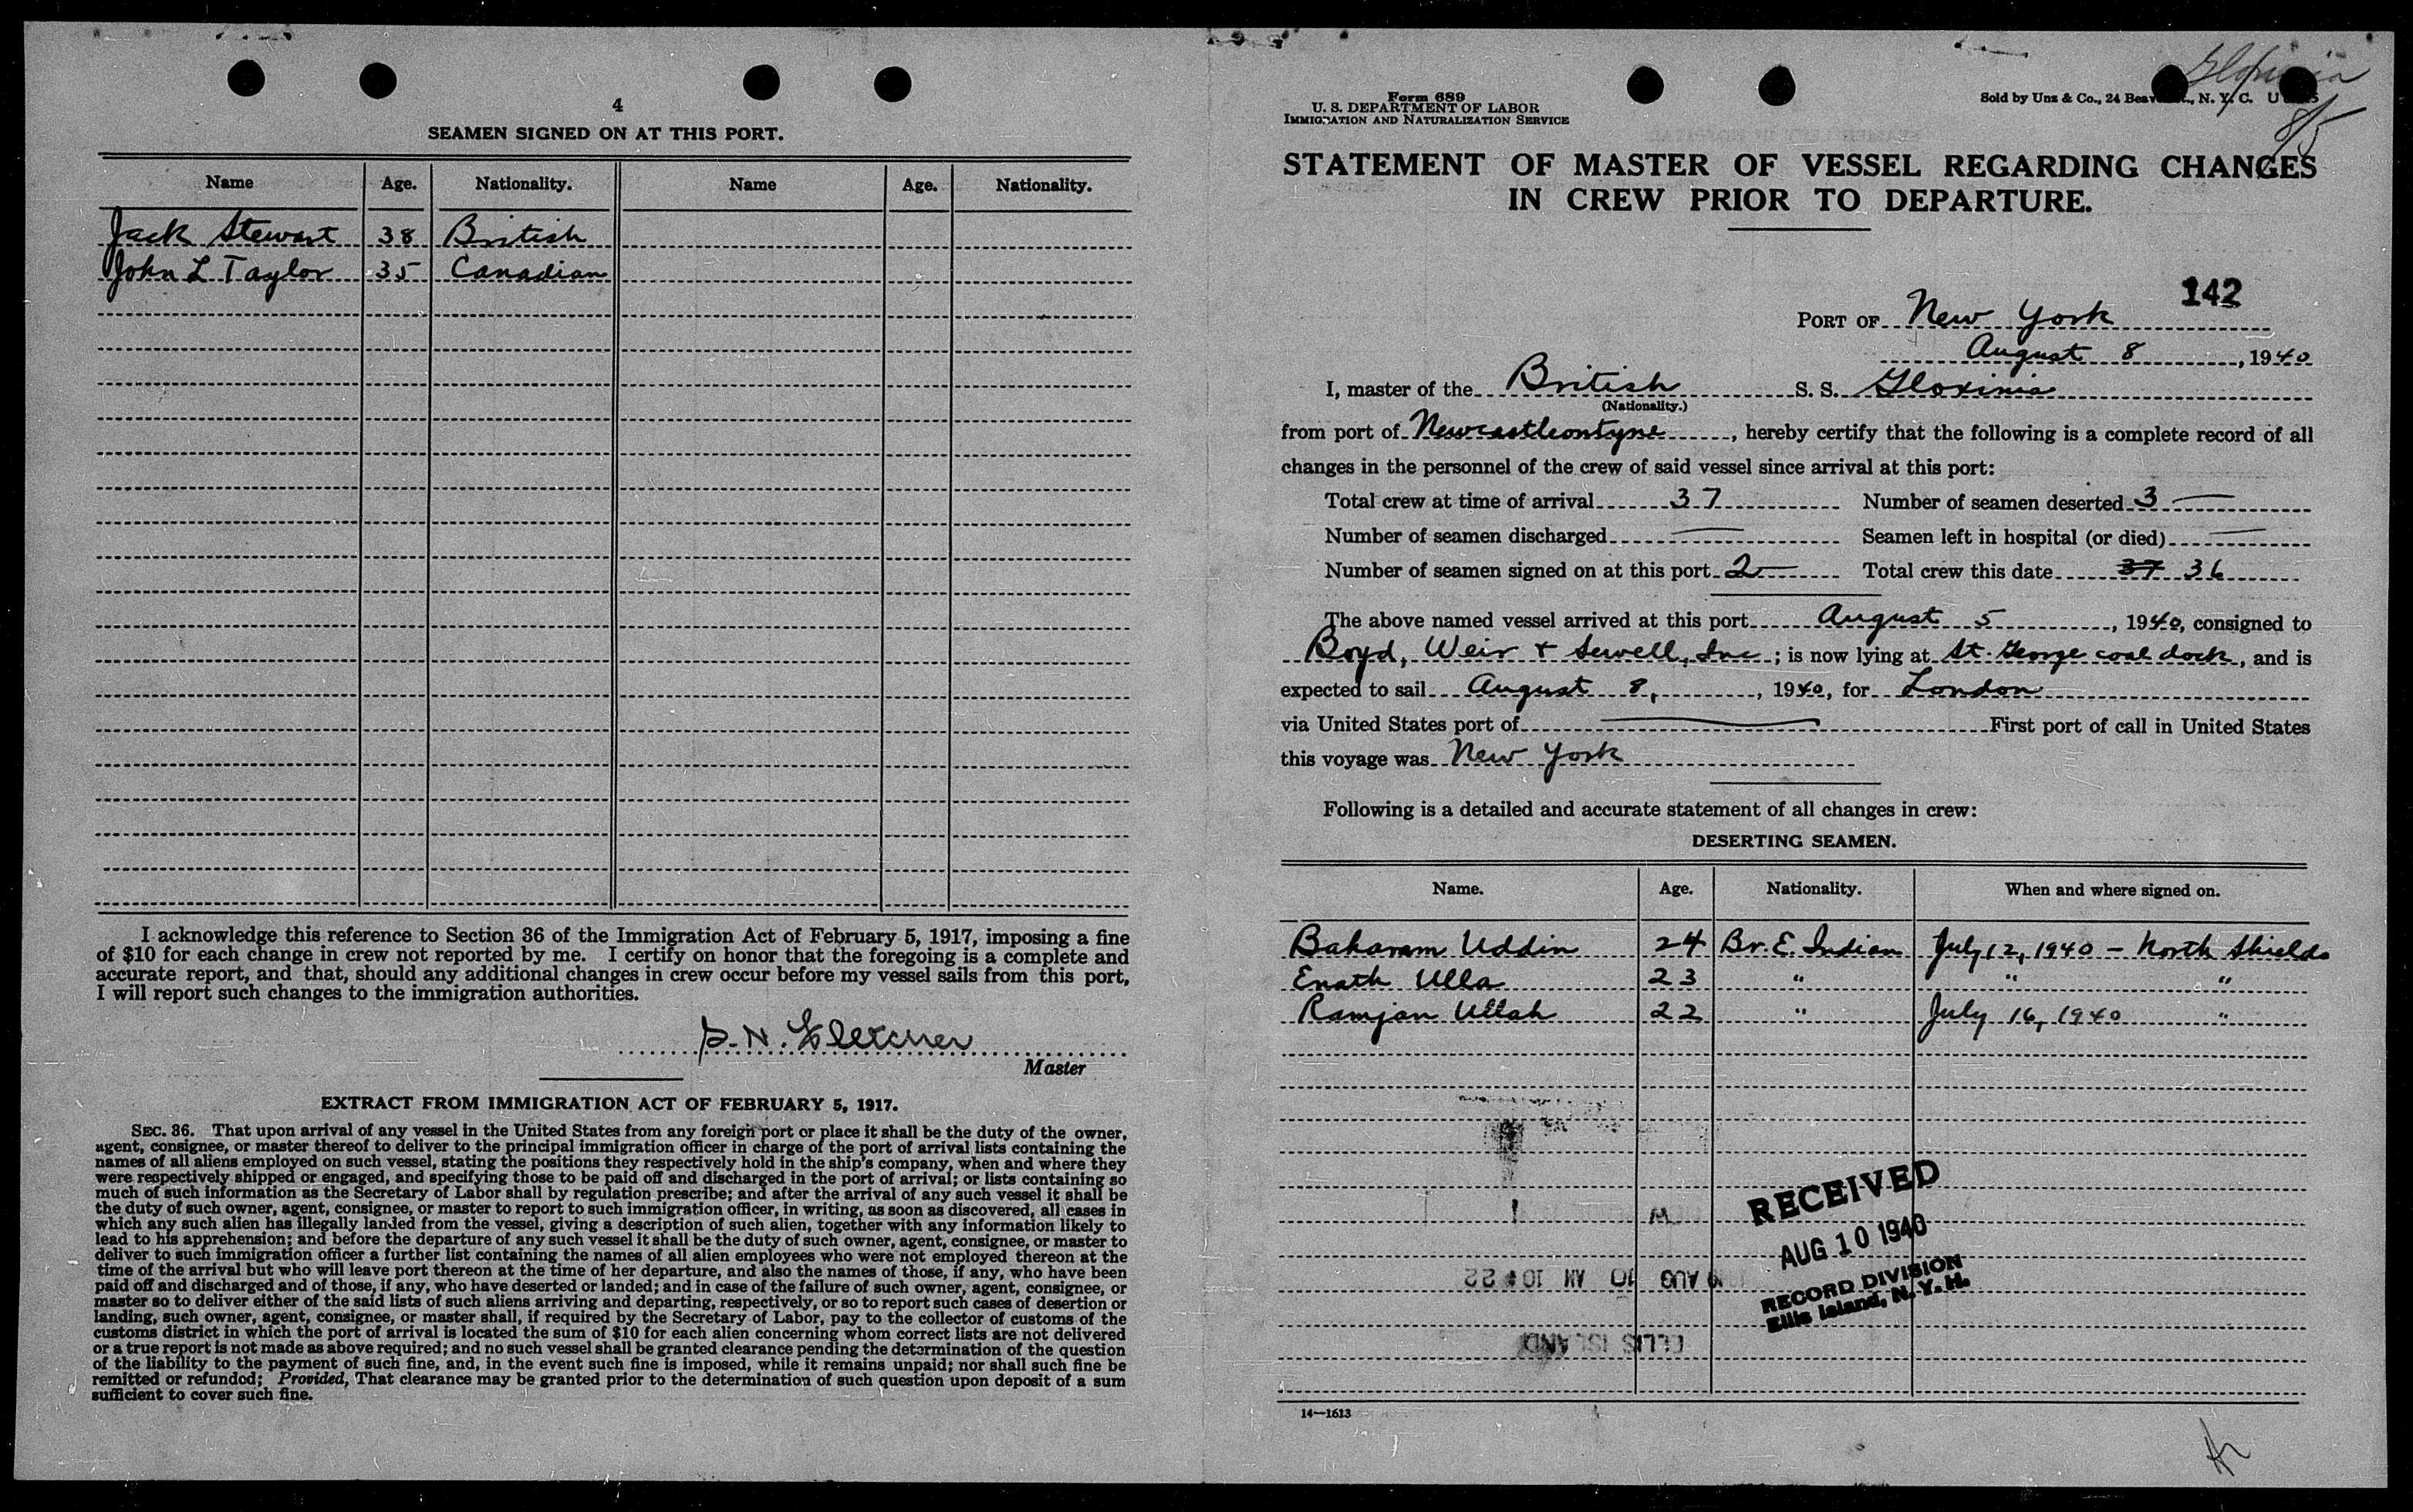 4
SEAMEN SIGNED ON AT THIS PORT.
Name Age. Nationality. Name Age. Nationality.
Jack Stewart 38 British
John L Taylor 35 Canadian
I acknowledge this reference to Section 36 of the Immigration Act of February 5, 1917, imposing a fine
of $10 for each change in crew not reported by me. I certify on honor that the foregoing is a complete and
accurate report, and that, should any additional changes in crew occur before my vessel sails from this port,
I will report such changes to the immigration authorities.
Fletcher
Master
EXTRACT FROM IMMIGRATION ACT OF FEBRUARY 5, 1917.
SEC. 36. That upon arrival of any vessel in the United States from any foreign port or place it shall be the duty of the owner,
agent, consignee, or master thereof to deliver to the principal immigration officer in charge of the port of arrival lists containing the
names of all aliens employed on such vessel, stating the positions they respectively hold in the ship's company, when and where they
were respectively shipped or engaged, and specifying those to be paid off and discharged in the port of arrival; or lists containing so
much of such information as the Secretary of Labor shall by regulation prescribe; and after the arrival of any such vessel it shall be
the duty of such owner, agent, consignee, or master to report to such immigration officer, in writing, as soon as discovered, all cases in
which any such alien has illegally landed from the vessel, giving a description of such alien, together with any information likely to
lead to his apprehension; and before the departure of any such vessel it shall be the duty of such owner, agent, consignee, or master to
deliver to such immigration officer a further list containing the names of all alien employees who were not employed thereon at the
time of the arrival but who will leave port thereon at the time of her departure, and also the names of those, if any, who have been
paid off and discharged and of those, if any, who have deserted or landed; and in case of the failure of such owner, agent, consignee, or
master so to deliver either of the said lists of such aliens arriving and departing, respectively, or so to report such cases of desertion or
landing, such owner, agent, consignee, or master shall, if required by the Secretary of Labor, pay to the collector of customs of the
customs district in which the port of arrival is located the sum of $10 for each alien concerning whom correct lists are not delivered
or a true report is not made as above required; and no such vessel shall be granted clearance pending the determination of the question
of the liability to the payment of such fine, and, in the event such fine is imposed, while it remains unpaid; nor shall such fine be
remitted or refunded; Provided, That clearance may be granted prior to the determination of such question upon deposit of a sum
sufficient to cover such fine.
Gloxinia
8/5
Form 689
U. S. DEPARTMENT OF LABOR
IMMIGRATION AND NATURALIZATION SERVICE
Sold by Unz & Co., 24 N. Y. C.
STATEMENT OF MASTER OF VESSEL REGARDING CHANGES
IN CREW PRIOR TO DEPARTURE.
142
PORT OF New York
August 8, 1940
I, master of the British S. S. Gloxinia
(Nationality.)
from port of Newcastleontyne, hereby certify that the following is a complete record of all
changes in the personnel of the crew of said vessel since arrival at this port:
Total crew at time of arrival 37 Number of seamen deserted 3 —
Number of seamen discharged — Seamen left in hospital (or died) —
Number of seamen signed on at this port 2 — Total crew this date 37 36
The above named vessel arrived at this port August 5, 1940, consigned to
Boyd, Weir & Sewell, Inc; is now lying at St. George coal dock, and is
expected to sail August 8, , 1940, for London
via United States port of — First port of call in United States
this voyage was New York
Following is a detailed and accurate statement of all changes in crew:
DESERTING SEAMEN.
Name. Age. Nationality. When and where signed on.
Baharam Uddin 24 Br. E. Indian July 12, 1940 - North Shields
Enath Ulla 23 " " "
Ramjan Ullah 22 " July 16, 1940 "
RECEIVED
AUG 10 1940
RECORD DIVISION
Ellis Island, N. Y. H.
AUG 10 AM 10 22
ELLIS ISLAND
14—1613